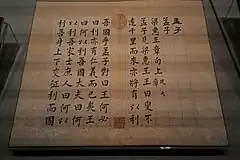 孟子
梁惠王章句上 凡七章
孟子見梁惠王王曰叟不
遠千里而來亦將有以利
吾國乎孟子對曰王何必
曰利亦有仁義而已矣王
曰何以利吾國大夫曰何
以利吾家士庶人曰何以
利吾身上下交征利而國